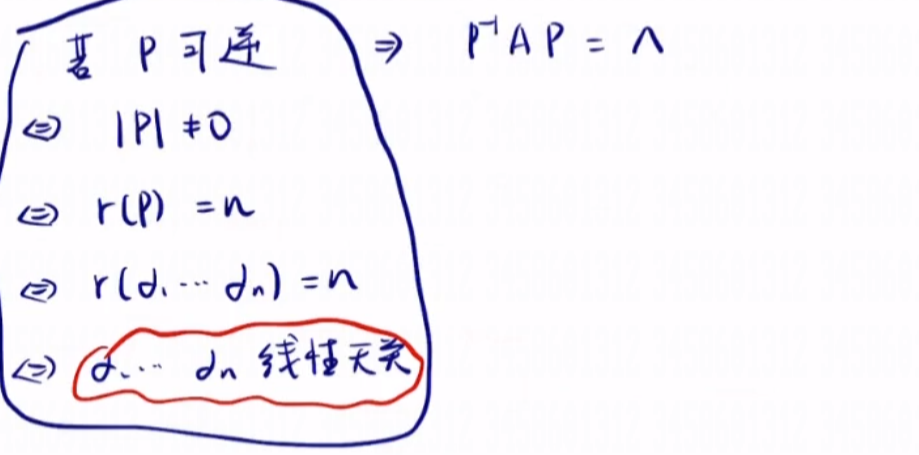 若 P 可逆 ⇒ P⁻¹AP = Λ
⇔ |P| ≠ 0
⇔ r(P) = n
⇔ r(α₁ ⋯ αₙ) = n
⇔ α₁ ⋯ αₙ 线性无关